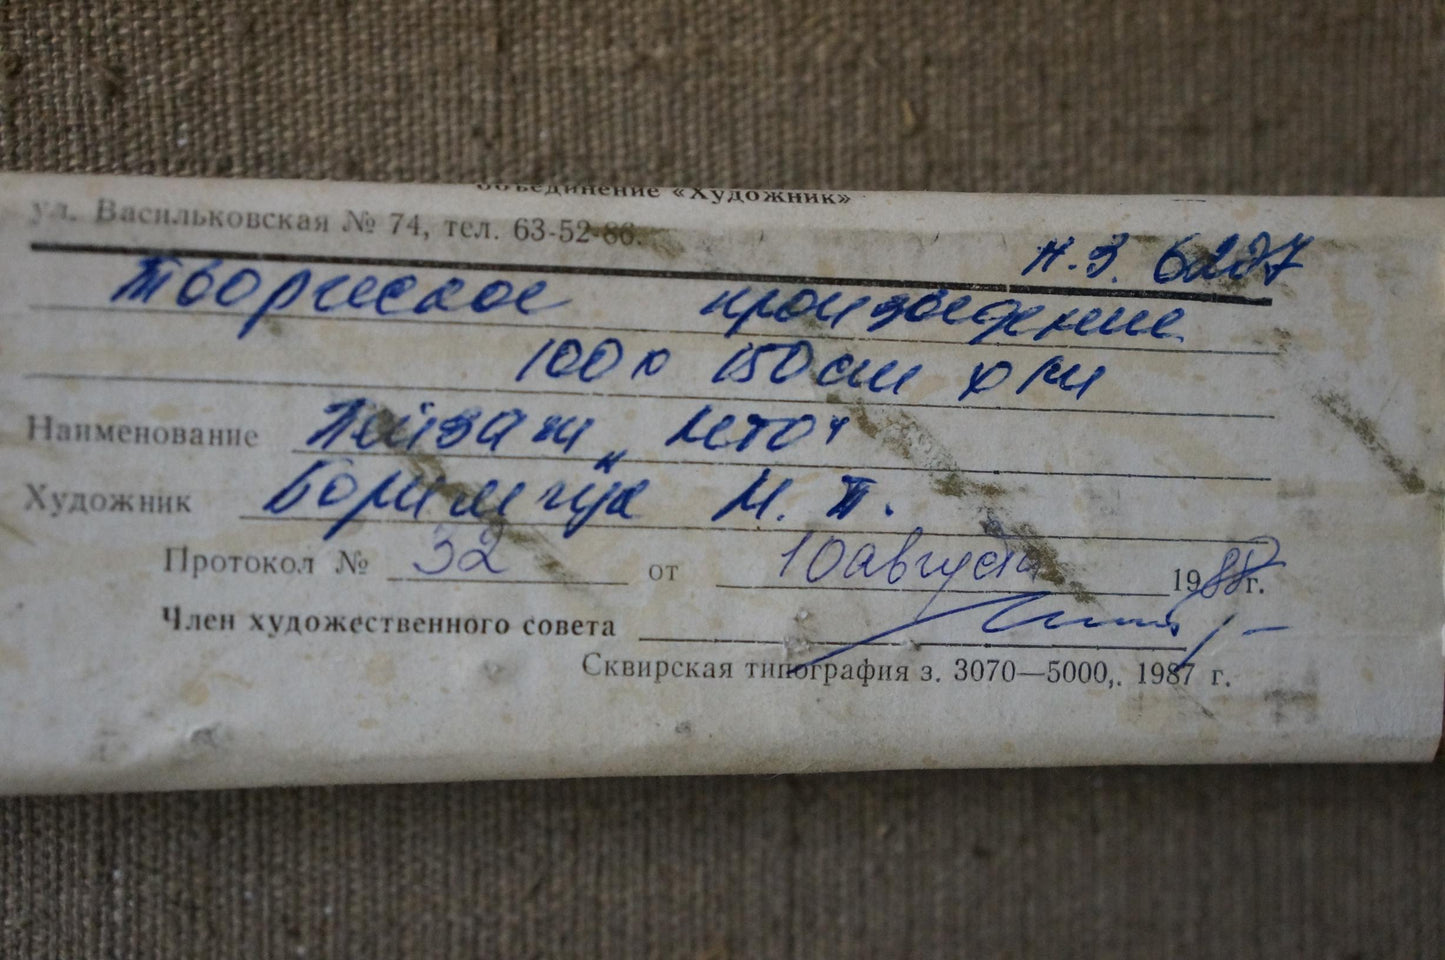 объединение «Художник»
ул. Васильковская № 74, тел. 63-52-86.
н.з. 6287
Творческое произведение
100 х 150 см х/м
Наименование Пейзаж
Художник М. П.
Протокол № 32 от 10 августа 1988 г.
Член художественного совета
Сквирская типография з. 3070—5000,. 1987 г.